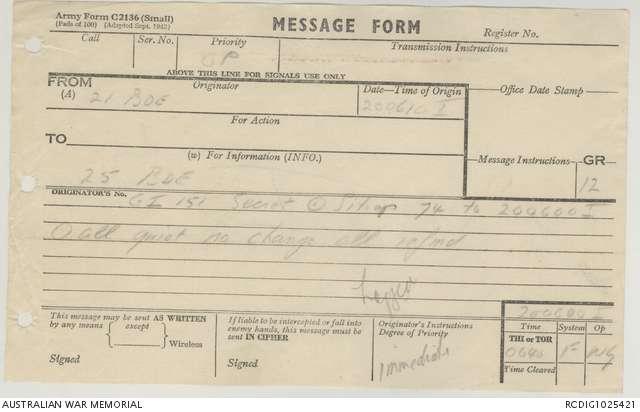 Army Form C2136 (Small)
(Pads of 100) (Adapted Sept. 1942)
MESSAGE FORM
Register No.
Call
Ser. No.
Priority
Transmission Instructions
OP
ABOVE THIS LINE FOR SIGNALS USE ONLY
FROM
(A)
Originator
Date—Time of Origin
Office Date Stamp
21 BDE
200610 I
For Action
TO
(w) For Information (INFO.)
Message Instructions
GR
25 BDE
12
ORIGINATOR'S No.
GI 151 Secret Sitrep 74 to 200600 I
all quiet no change all
200600 I
This message may be sent AS WRITTEN
by any means except
Wireless
Signed
If liable to be intercepted or fall into
enemy hands, this message must be
sent IN CIPHER
Signed
Originator's Instructions
Degree of Priority
immediate
Time
System
Op
THI or TOR
0640
Time Cleared
AUSTRALIAN WAR MEMORIAL
RCDIG1025421